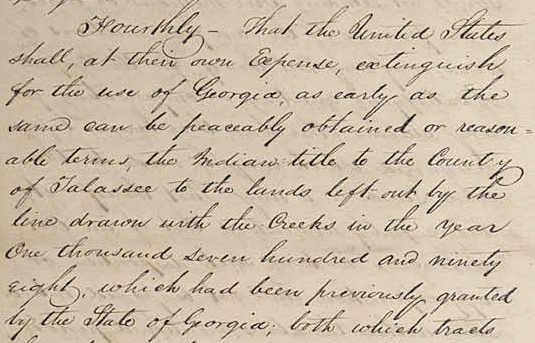 Fourthly - That the United States
shall, at their own Expense, extinguish
for the use of Georgia, as early as the
same can be peaceably obtained or reason=
able terms, the Indian title to the County
of Talassee to the lands left out by the
line drawn with the Creeks in the year
One thousand seven hundred and ninety
eight, which had been previously granted
by the State of Georgia; both which tracts